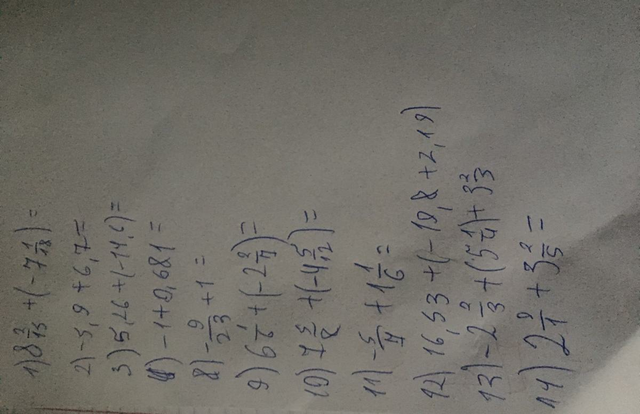 1) 8 2/15 + (-7 1/18) =
2) -5,9 + 6,7 =
3) 5,46 + (-14,6) =
4) -1 + 0,681 =
8) -9/23 + 1 =
9) 6 1/6 + (-2 2/7) =
10) 7 5/8 + (-4 5/12) =
11) -5/7 + 1 1/6 =
12) 16,53 + (-19,8 + 2,19)
13) -2 2/3 + (5 1/4) + 3 2/3
14) 2 9/1 + 3 2/5 =